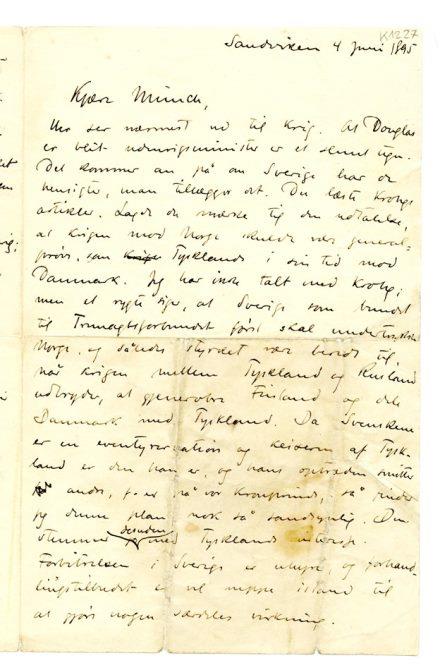 K1227
Sandviken 4 Juni 1895
Kjære Munch,
ser nærmest ud til Krig. At Douglas
er blit udenrigsminister er et slemt tegn.
Det kommer an på om Sverige har de
hensigter, man tillægger det. Du læste Krohgs
artikler. Lagde du mærke til den udtalelse,
at krigen mod Norge skulde være general-
prøve, som Tysklands i sin tid mod
Danmark. Jeg har ikke talt med Krohg,
men et rygte siger, at Sverige som bundet
til Trippelforbundet først skal undertrykke
Norge, og således styrket være beredt til,
når krigen mellem Tyskland og Rusland
udbryder, at gjenerobre Finland og dele
Danmark med Tyskland. Da Svenskene
er en eventyrernation og keiseren af Tysk-
land er den han er, og hans optræden smitter
andre, f. ex. på vor Kronprins, så finder
jeg denne plan nok så sandsynlig. Den
stemmer desuden med Tysklands interesse.
Forbitrelsen i Sverige er uhyre, og forhand-
lingstilbudet er vel neppe istand til
at gjøre nogen særdeles virkning.